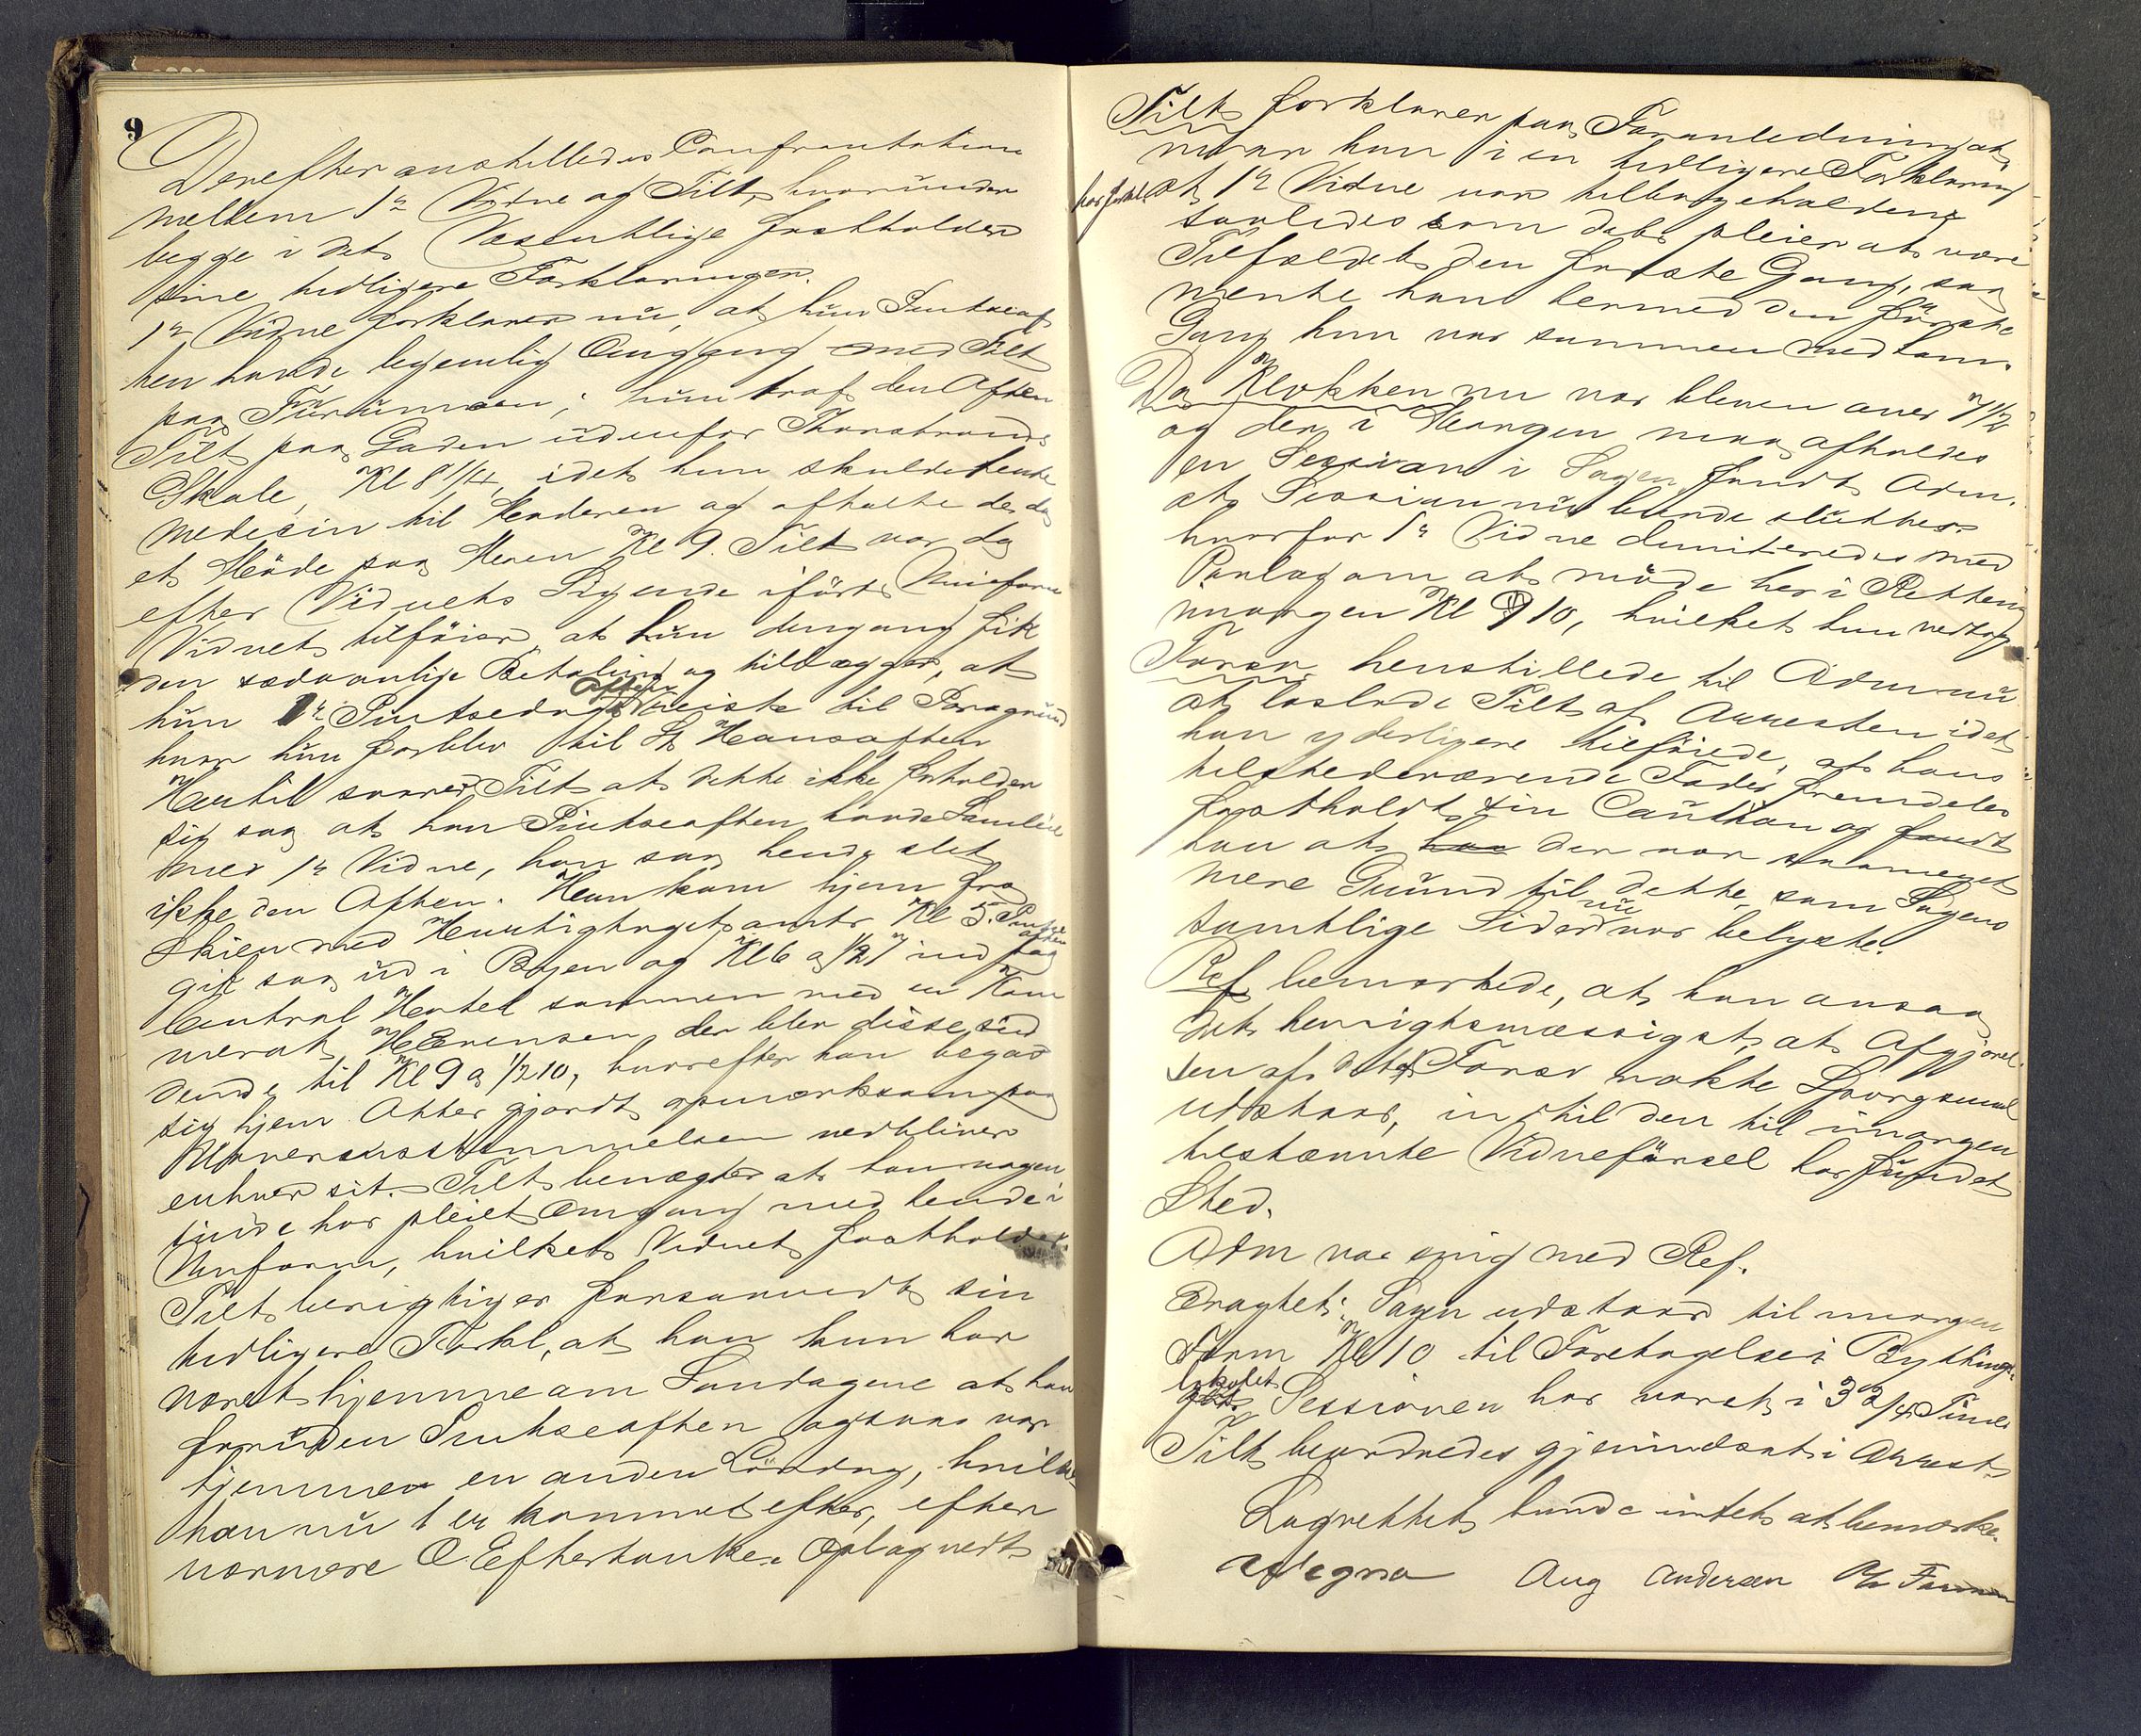 9
Derefter anstilledes Confrontation
mellem 1ste Vidne og Tilt, hvorunder
begge i det Væsentlige fastholder
sine tidligere Forklaringer.
1ste Vidne forklarer nu, at hun Pintseaf
ten havde legemlig Omgang med Tilt
paa ; hun traf den Aften
Tilt paa Gaden udenfor
Skole, Kl 8 1/4, idet hun skulde hente
Medesin til Moderen og aftalte de da
et Møde paa Kl 9. Tilt var da
efter Vidnets Sigende iført Uniform
Vidnet tilføier, at hun dengang fik
den sædvanlige Betaling og tillægger, at
hun 1ste Pintsedags Aften reiste til Porsgrund
hvor hun forblev til St Hansaften
Hertil svarer Tilt at dette ikke forholder
sig saa at han Pintseaften havde Samleie
med 1ste Vidne, han saa hende slet
ikke den Aften. Han kom hjem fra
Skien med Hurtigtoget omtr Kl 5. Pintse
aften
gik saa ud i Byen og Kl 6 a 1/2 7 ind paa
Central Hotel sammen med en Kam
merat H Evensen, der blev disse sid
dende til Kl 9 a 1/2 10, hvorefter han begav
sig hjem. Atter gjordt opmærksom paa
Uoverensstemmelsen vedbliver
enhver sit. Tilt benægter at han nogen
sinde har pleiet Omgang med hende i
Uniform, hvilket Vidnet fastholder.
Tilt berigtiger forsaavidt sin
tidligere Forkl, at han kun har
været hjemme om Søndagene at han
foruden Pintseaften ogsaa var
hjemme en anden Lørdag, hvilket
han nu er kommet efter, efter
nærmere Eftertanke. Oplæg vedt
Tilt forklarer paa Foranledning at
naar han i en tidligere Forklaring
har forkl. at 1ste Vidne var tilbageholdende
saaledes som det pleier at være
Tilfældet den første Gang, saa
mente han dermed den første
Gang hun var sammen med ham.
Da Klokken nu var bleven over 7 1/2
og der i Morgen maa afholdes
en Session i Sagen fandt Adm.
at Sessionen nu burde sluttes
hvorfor 1ste Vidne dimiteredes med
Paalæg om at møde her i Retten
imorgen Kl 10, hvilket hun vedtog
Forsv henstillede til Adm nu
at løslade Tilt af Arresten idet
han yderligere tilføiede, at hans
tilstedeværende Fader fremdeles
fastholdt sin Caution og fandt
han at der var saameget
mere Grund til dette, som Sagens
samtlige Sider nu var belyste.
Ref. bemærkede, at han ansaa
det hensigtsmæssigst, at Afgjørel
sen af det af Forsv vakte Spørgsmaal
udstaar, indtil den til imorgen
bestemte Vidneførsel har fundet
Sted.
Adm var enig med Ref.
Eragtet: Sagen udstaar til imorgen
Form Kl 10 til Foretagelse i Bythings
lokalet
Sessionen har varet i 3 3/4 Time
Tilt beordredes gjenindsat i Arrest
Lagrettet havde intet at bemærke.
Aug Andersen